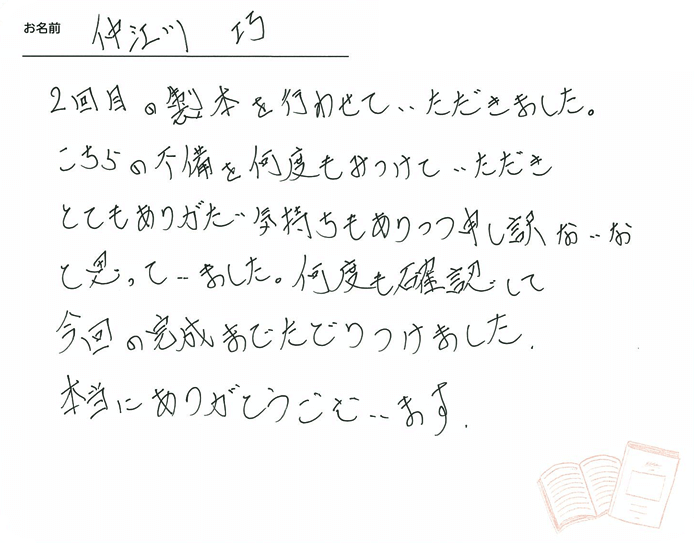 お名前 仲江川 巧
2回目の製本を行わせていただきました。
こちらの不備を何度もみつけていただき
とてもありがたい気持ちもありつつ申し訳ないな
と思っていました。何度も確認して
今回の完成までたどりつけました.
本当にありがとうございます.